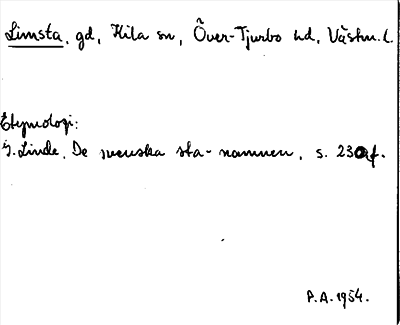 Limsta, gd, Kila sn, Över-Tjurbo hd, Västm. l.
Etymologi:
G. Linde, De svenska sta-namnen, s. 230 f.
P.A. 1954.